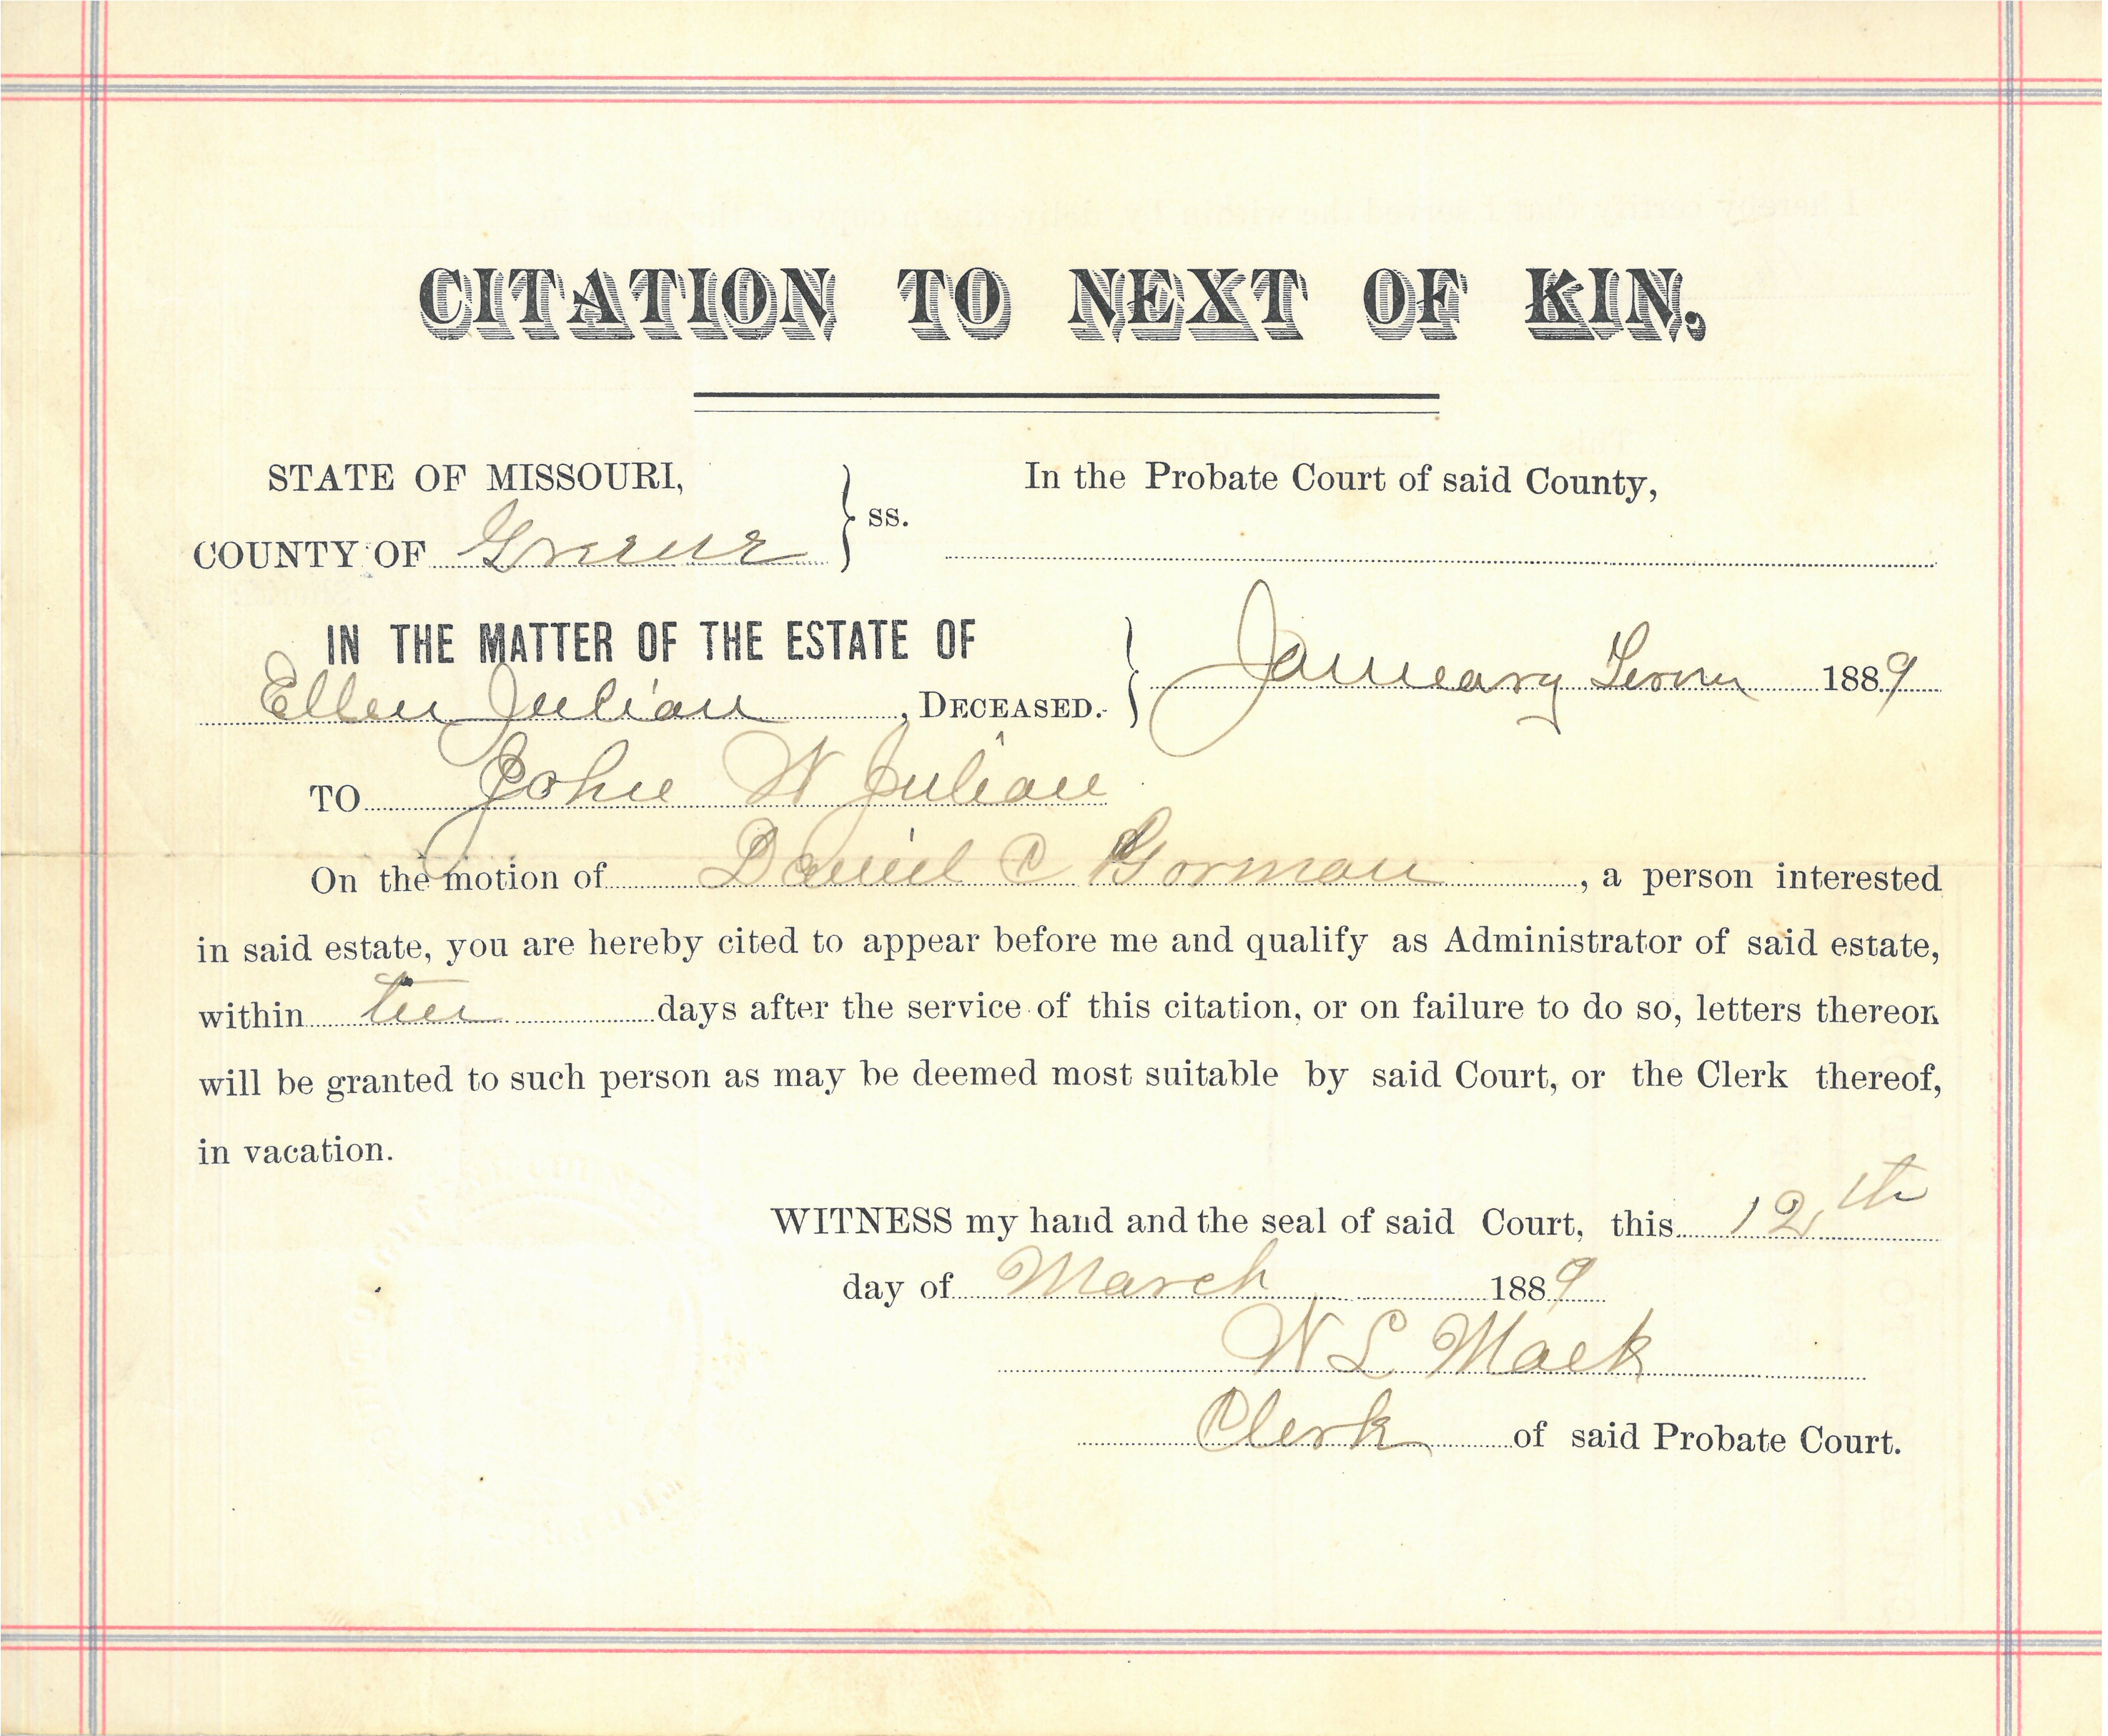 CITATION TO NEXT OF KIN,
STATE OF MISSOURI,
COUNTY OF Greene
ss.
In the Probate Court of said County,
IN THE MATTER OF THE ESTATE OF
Ellen Julian, DECEASED.
January Term 1889
TO John W Julian
On the motion of Daniel C Gorman, a person interested
in said estate, you are hereby cited to appear before me and qualify as Administrator of said estate,
within ten days after the service of this citation, or on failure to do so, letters thereon
will be granted to such person as may be deemed most suitable by said Court, or the Clerk thereof,
in vacation.
WITNESS my hand and the seal of said Court, this 12th
day of March 1889
W L Mack
Clerk of said Probate Court.